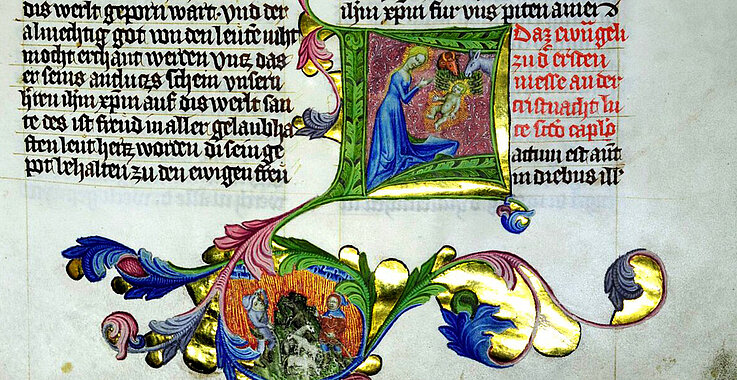 dis werlt geporn wart. vnd der
almechtig got von den leuten nicht
mocht erchant werden vncz das
er seins antluczs schein vnsern
h̄ren ih̄m xp̄m auf dis werlt san
te des ist freud in aller gelaubha
ften leut hercz worden di sein ge
pot behalten zu den ewigen freu
ih̄m xp̄m fur vns piten amen
Daz ewn̄geli
zu d̓ ersten
messe an der
cristnacht lu
te sc̄do caplo
actum est aut̄
in diebus ill̓